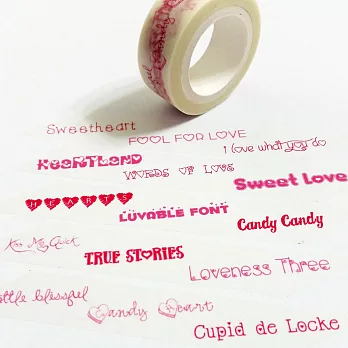 Sweetheart
FOOL FOR LOVE
I love what you do
HEARTLAND
WORDS OF LOVE
Sweet Love
HEARTS
LUVABLE FONT
Candy Candy
Kiss Me Quick
TRUE STORIES
Loveness Three
little blissful
Candy Heart
Cupid de Locke